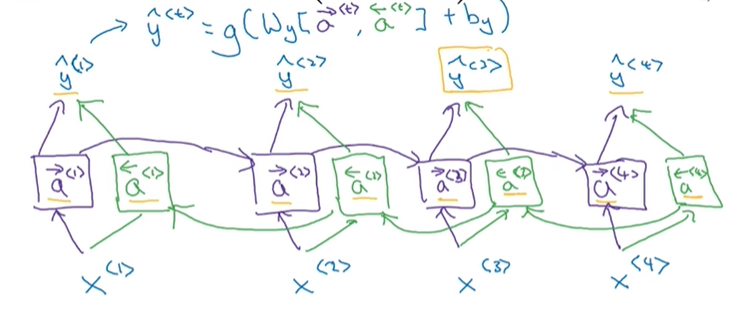 ŷ^<t> = g(W_y[a→^<t>, a←^<t>] + b_y)
ŷ^<1> ŷ^<2> ŷ^<3> ŷ^<4>
a→^<1> a←^<1> a→^<2> a←^<2> a→^<3> a←^<3> a→^<4> a←^<4>
x^<1> x^<2> x^<3> x^<4>